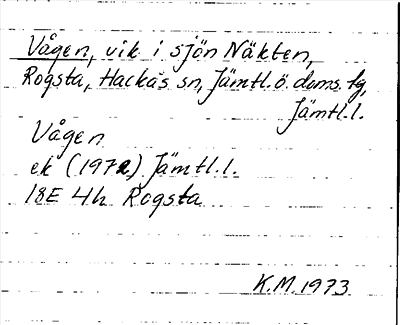 Vågen, vik i sjön Näkten,
Rogsta, Hackås sn, Jämtl. ö. doms. tg,
Jämtl. l.
Vågen
ek (1972) Jämtl. l.
18E 4h Rogsta
K.M. 1973